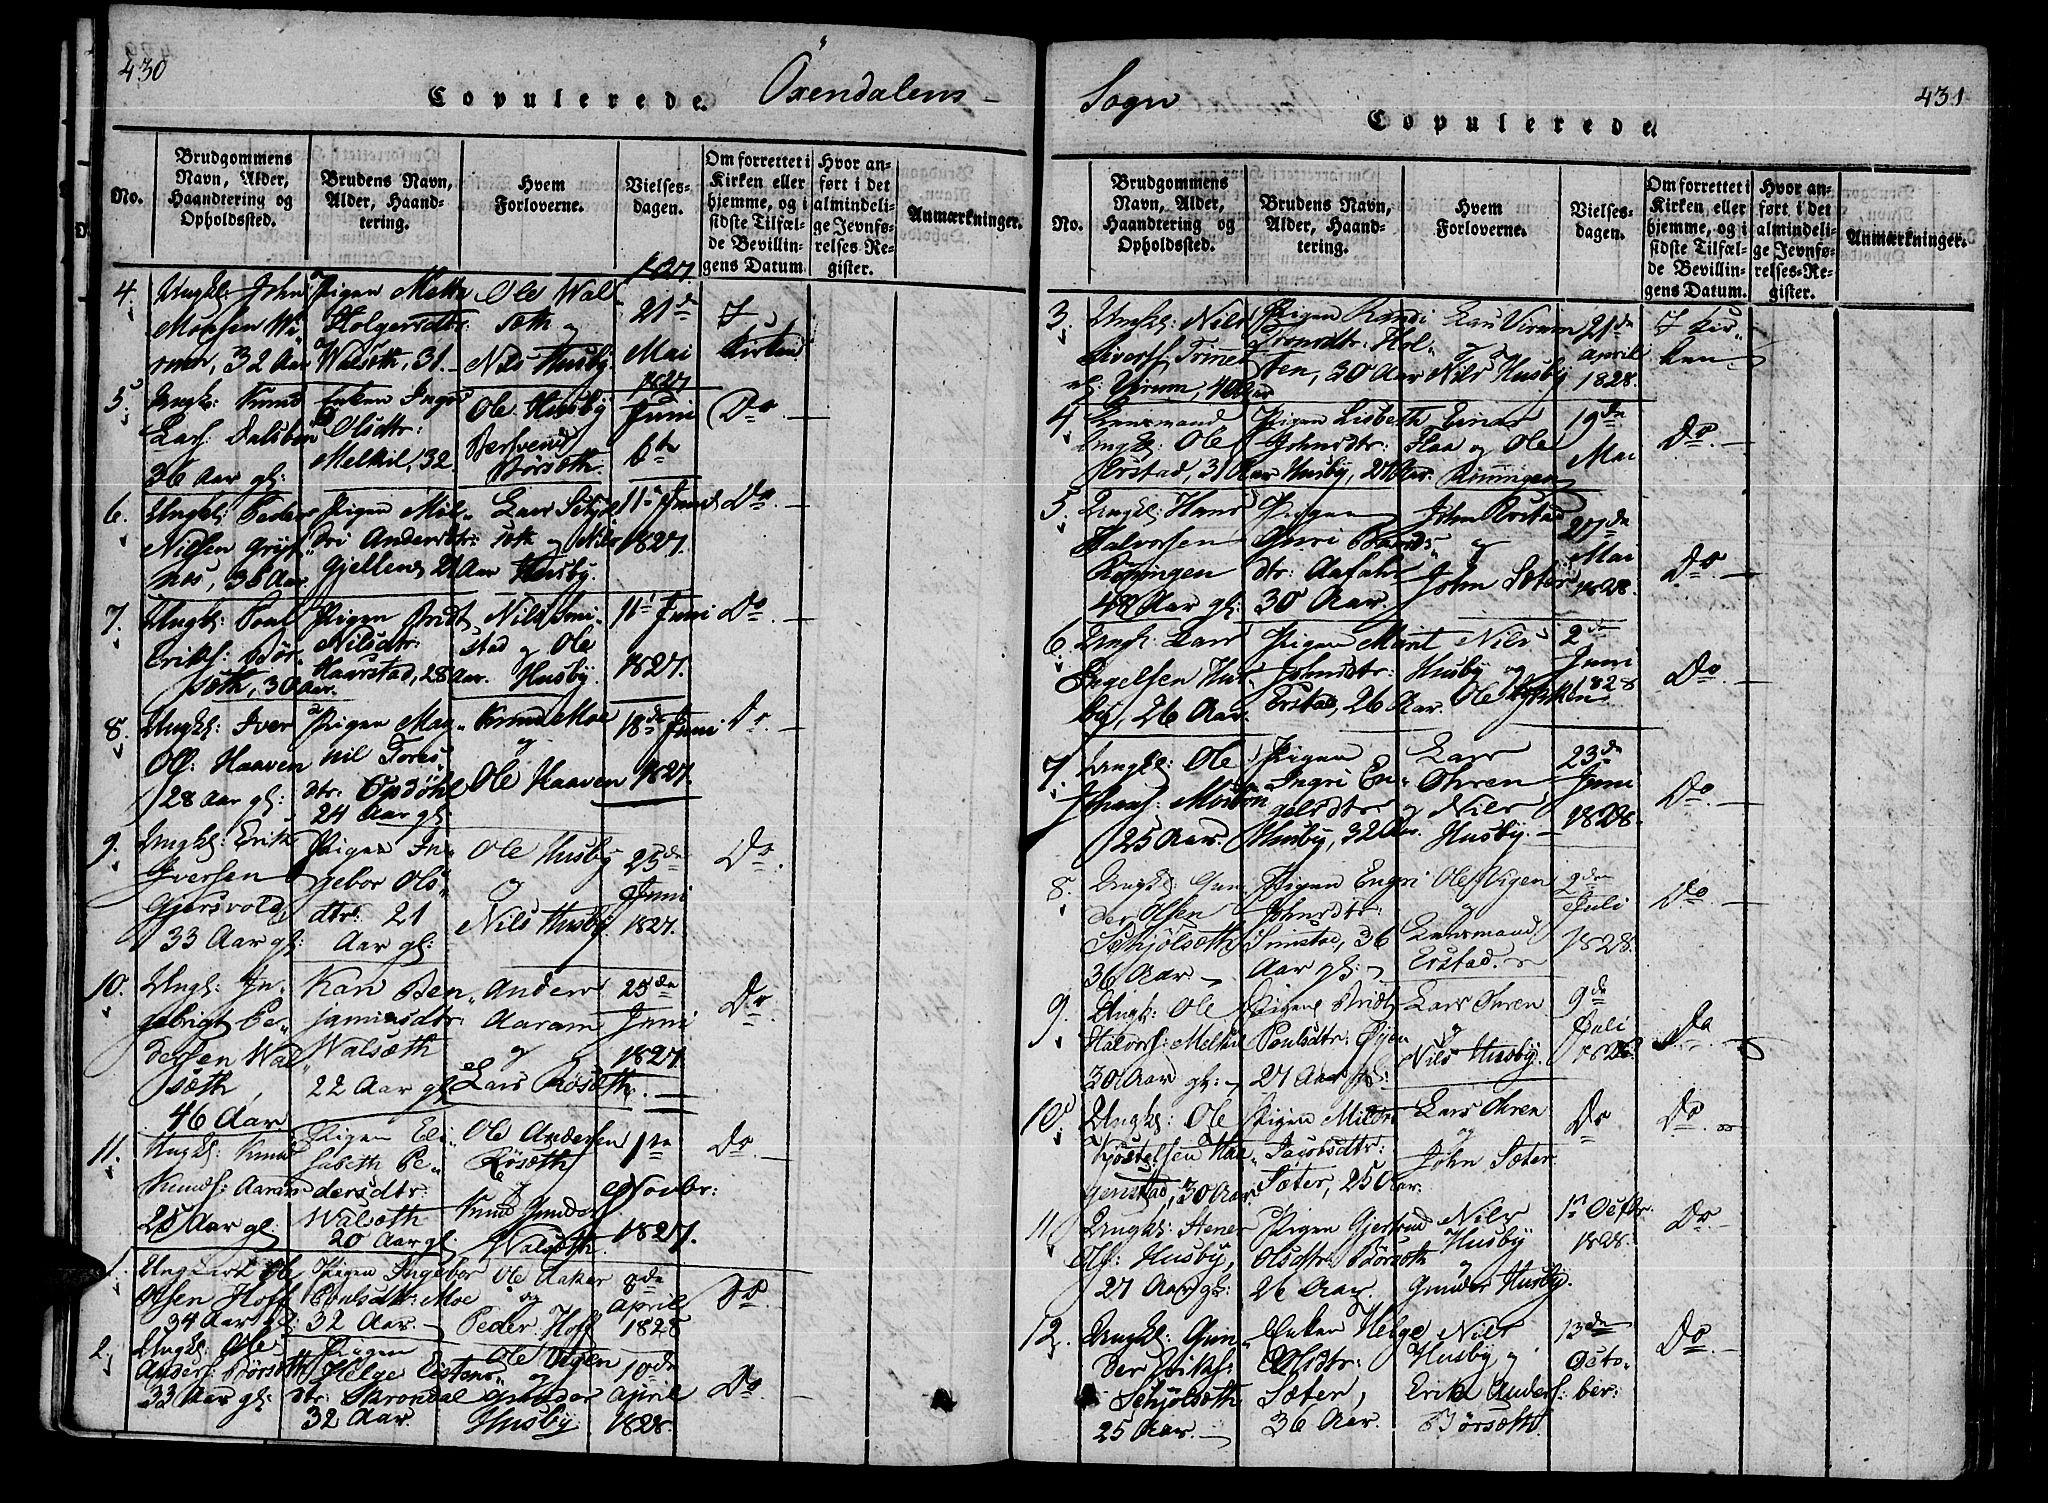 430
Copulerede.
Öxendalens
No.
Brudgommens
Navn, Alder,
Haandtering og
Opholdssted.
Brudens Navn,
Alder, Haand-
tering.
Hvem
Forloverne.
Vielses-
dagen.
Om forrettet i
Kirken eller
hjemme, og i
sidste Tilfæl-
de Bevillin-
gens Datum.
Hvor an-
ført i det
almindeli-
ge Jevnfø-
relses-Re-
gister.
Anmærkninger.
4.
Ungk: John
Monsen Wi-
rum, 32 Aar
Pigen Mette
Holgersdtr:
Walsøth, 31.
Ole Wal
søth og
Nils Husby
1827.
21de
Mai
I
Kirken
5.
Ungk: Knud
Lars:
36 Aar gl:
Enken Ingri
Olsdtr:
Melkil, 32.
Ole Husby
Børsøth.
1827
Juni
6te
Do.
6.
Ungk: Peder
Nielsen
Pigen Mil-
dri Andersdtr:
Gjellenes 21 Aar
og Nils
Husby.
11te Juni
1827.
Do.
7.
Ungk: Poul
Eriks: Bør-
søth, 30 Aar.
Pigen Bridt
Nilsdtr:
Haarstad, 28 Aar.
Nils Imi-
stad og Ole
Husby.
11te Juni
1827.
Do
8.
Ungk: Iver
Ols: Haaven
28 Aar gl:
Pigen Mag-
nil Tores-
dtr:
24 Aar gl:
Knud Moe
og
Ole Haaven
18de Juni
1827.
Do.
9.
Ungk: Erik
Iversen
Gjersvold
33 Aar gl:
Pigen In-
gebor Ols-
dtr: 21
Aar gl:
Ole Husby
og
Nils Husby.
25de
Juni
1827.
Do.
10.
Ungk: In-
gebrigt Pe-
dersen Wal-
søth,
46 Aar.
Kari Ben-
jaminsdtr:
Walsøth
22 Aar gl:
Anders
Aaram
og
Lars Røsøth.
25de
Juni
1827.
Do
11.
Ungk: Knud
Knuds: Aaram
25 Aar gl:
Pigen Eli-
sabeth Pe-
dersdtr:
Walsøth
20 Aar gl:
Ole Andersen
Røsøth
og
Knud Gunder
Walsøth.
1ste
Novbr:
1827.
Do
1.
Ungkarl Ole
Olsen Hoff
34 Aar gl:
Pigen Ingebor
Poulsdtr: Moe
32 Aar.
Ole Aaker
og
Peder Hoff
8de
April
1828
Do.
2.
Ungk: Ole
Anders: Børsøth
33 Aar gl:
Pigen
Helge Eistens-
dtr: Skrondal
32 Aar.
Ole Vigen
og
Gunder
Husby
10de
April
1828.
Do
Sogn
Copulerede.
431
No.
Brudgommens
Navn, Alder,
Haandtering og
Opholdssted.
Brudens Navn,
Alder, Haand-
tering.
Hvem
Forloverne.
Vielses-
dagen.
Om forrettet i
Kirken eller
hjemme, og i
sidste Tilfæl-
de Bevillin-
gens Datum.
Hvor an-
ført i det
almindeli-
ge Jevnfø-
relses-Re-
gister.
Anmærkninger.
3.
Ungk: Nils
Siverts:
Virum, 40 Aar
Pigen Randi
Trondsdtr: Hol-
ten, 30 Aar
Lars Virum
og
Nils Husby
21de
April
1828.
I Kir-
ken
4
Lensmand
Ungk: Ole
Erstad, 31 Aar
Pigen Lisbeth
Johnsdtr:
Husby, 27 Aar.
Einar
Flaa og Ole
Røningen
19de
Mai
Do.
5.
Ungk: Hans
Halvorsen
Røningen
48 Aar gl:
Pigen
Guri Brands-
dtr:
30 Aar.
John Erstad
og
John Sæter
27de
Mai
1828.
Do
6.
Ungk: Lars
Ingelsen Hus-
by, 26 Aar.
Pigen Marit
Johnsdtr:
Erstad, 26 Aar.
Nils
Husby og
Ole
2de
Juni
1828
Do
7.
Ungk: Ole
25 Aar.
Pigen
Ingri En-
gelsdtr
Husby, 32 Aar.
Lars
Ohren
og Nils
Husby.
23de
Juni
1828.
Do.
8.
Ungk: Gun-
der Olsen
Schjølsøth
36 Aar
Pigen Engri
Johnsdtr:
Imistad, 36
Aar gl:
Ole Vigen
og
Lensmand
Erstad.
2den
Juli
1828.
Do
9.
Ungk: Ole
Halvors: Melkil
30 Aar gl:
Pigen Bridt
Poulsdtr: Øyen
27 Aar gl:
Lars Ohren
og
Nils Husby.
9de
Juli
1828
Do
10.
Ungk: Ole
30 Aar
Pigen Mildri
Jacobsdtr:
Sæter, 25 Aar.
Lars Ohren
og
John Sæter.
Do
Do
11
Ungk: Stener
Ols: Husby,
27 Aar gl:
Pigen Gjertrud
Olsdtr: Børsøth
26 Aar.
Nils
Husby
og
Gunder Husby.
1ste Octbr.
1828.
Do
12.
Ungk: Gun-
der Eriks:
Schjølsøth
25 Aar.
Enken Helge
Olsdtr:
Sæter,
36 Aar.
Nils
Husby og
Erik Anders:
Børsøth
13de
Octo-
ber:
Do